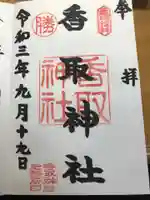 奉拝
香取神社
香取神社
勝
令和三年九月十九日